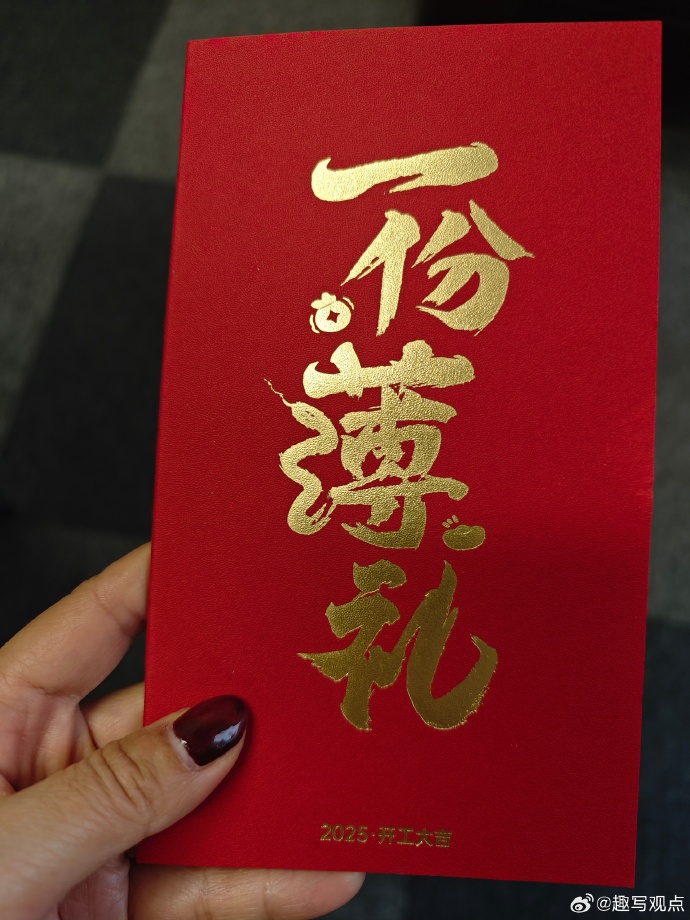 一份薄礼
2025·开工大吉
@趣写观点